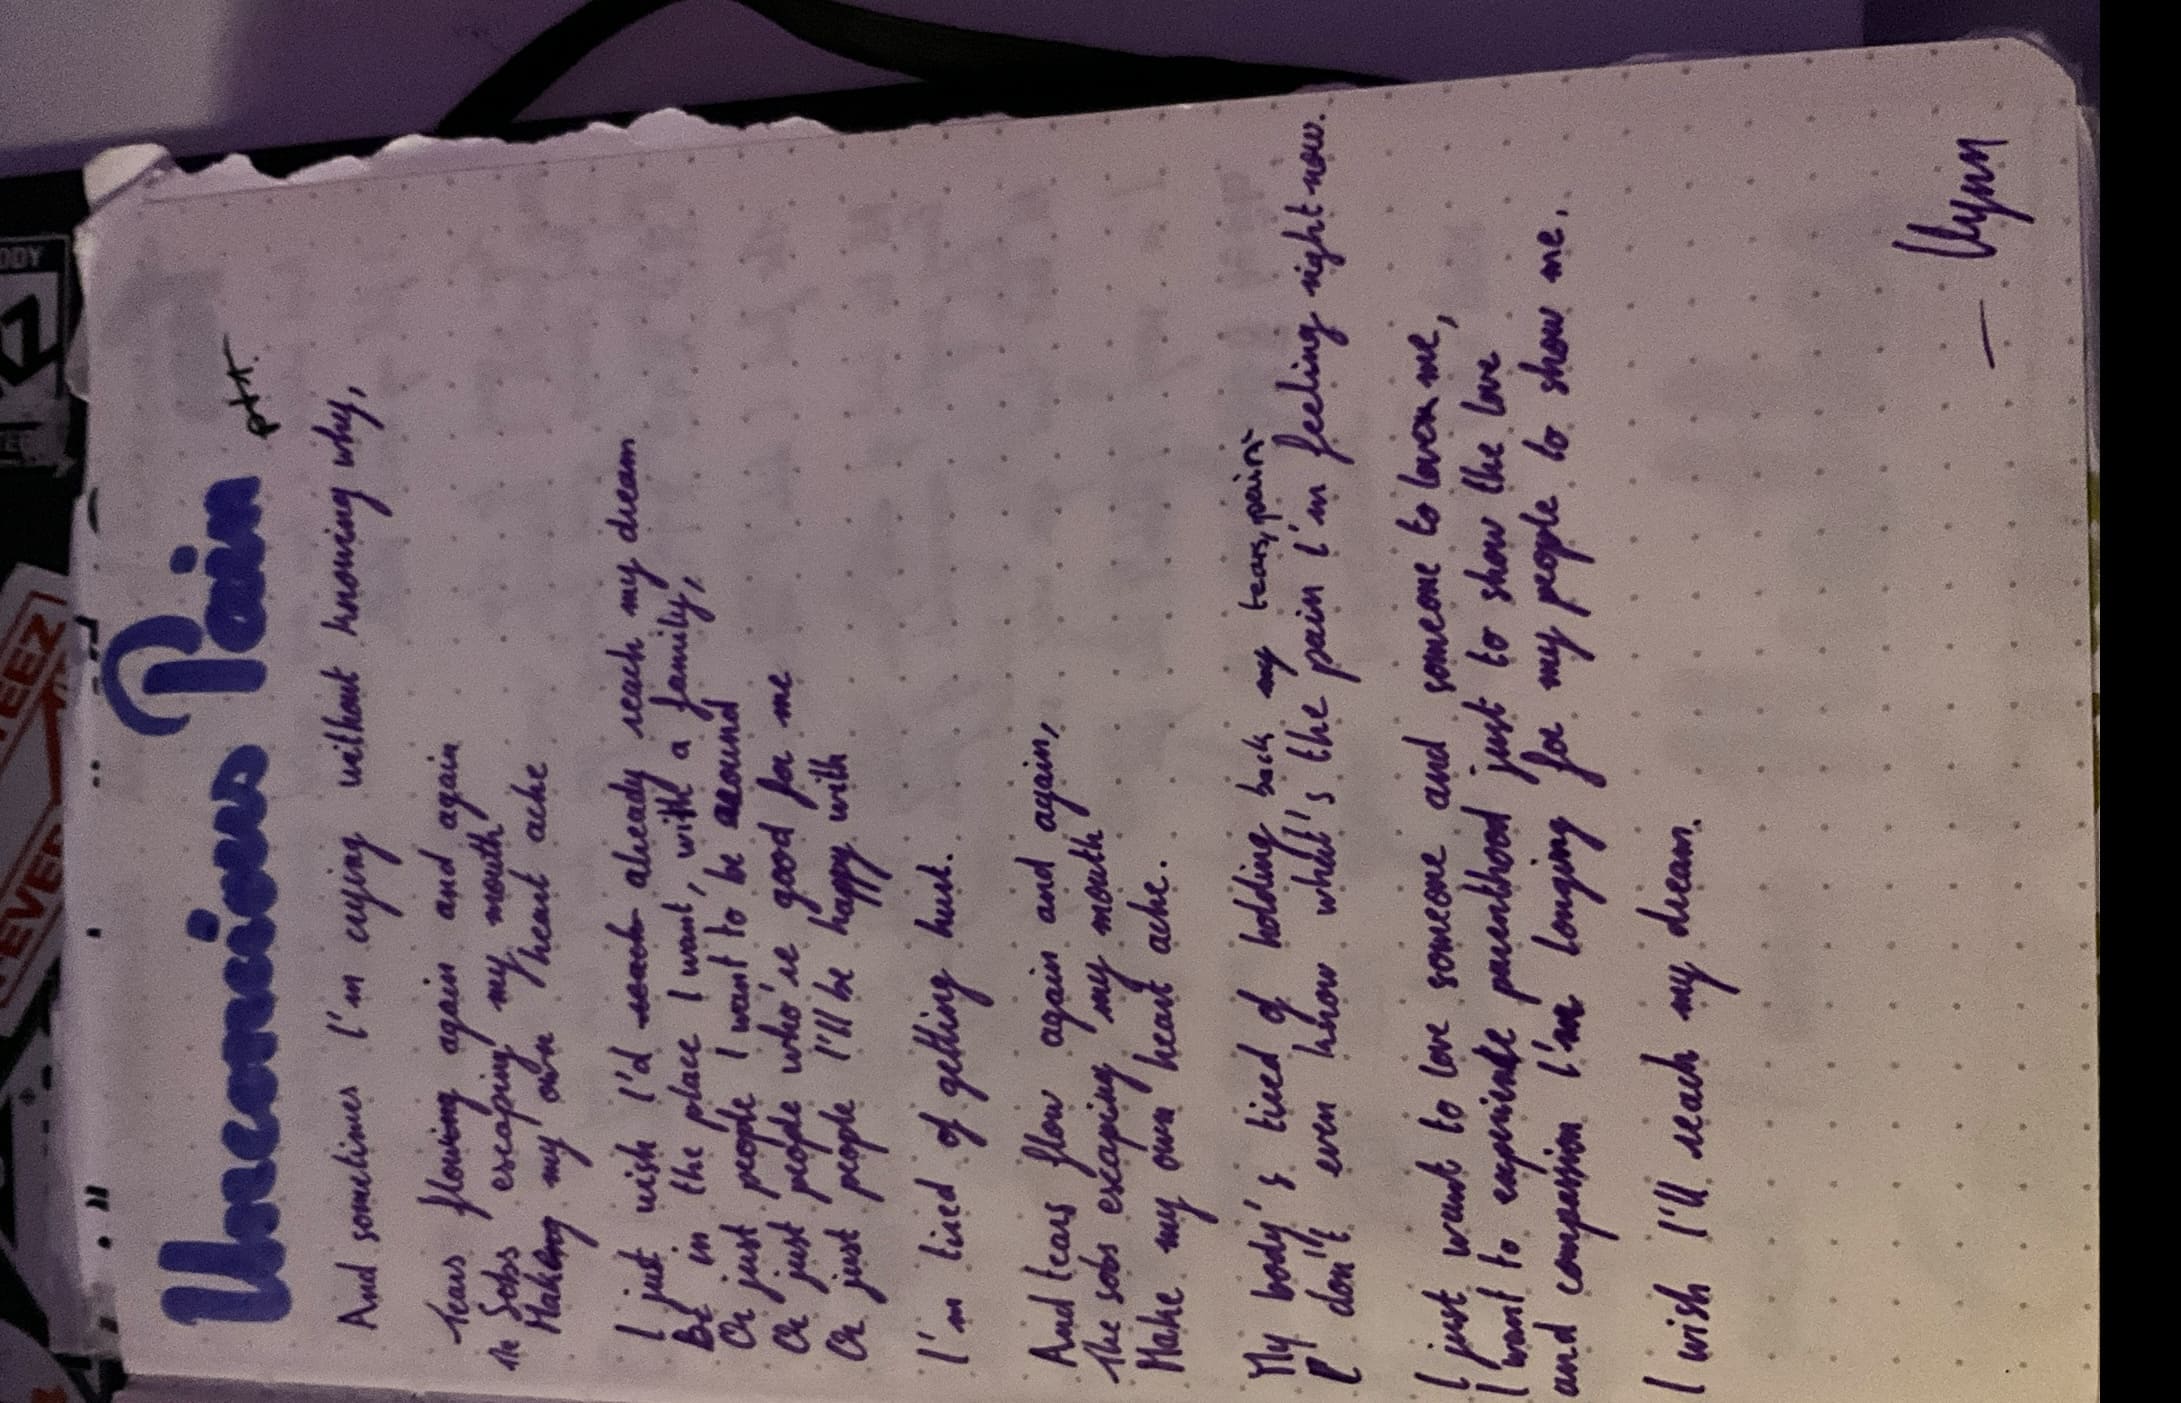 Unconscious Pain
ptt.
And sometimes I'm crying without knowing why,
Tears flowing again and again
The Sobs escaping my mouth
Making my own heart ache
I just wish I'd already reach my dream
Be in the place I want, with a family,
Or just people I want to be around
Or just people who're good for me
Or just people I'll be happy with
I'm tired of getting hurt.
And tears flow again and again,
The sobs escaping my mouth
Make my own heart ache.
My body's tired of holding back my tears, pain
I don't even know what's the pain I'm feeling right now.
I just want to love someone and someone to love me,
I want to experience parenthood just to show the love
and compassion I'm longing for my people to show me.
I wish I'll reach my dream.
ODY
TEEZ